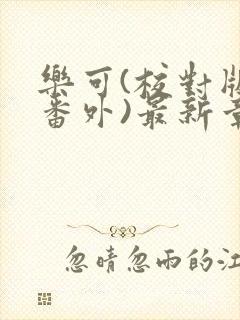 樂可(校對版
番外)最新章
忽晴忽雨的江